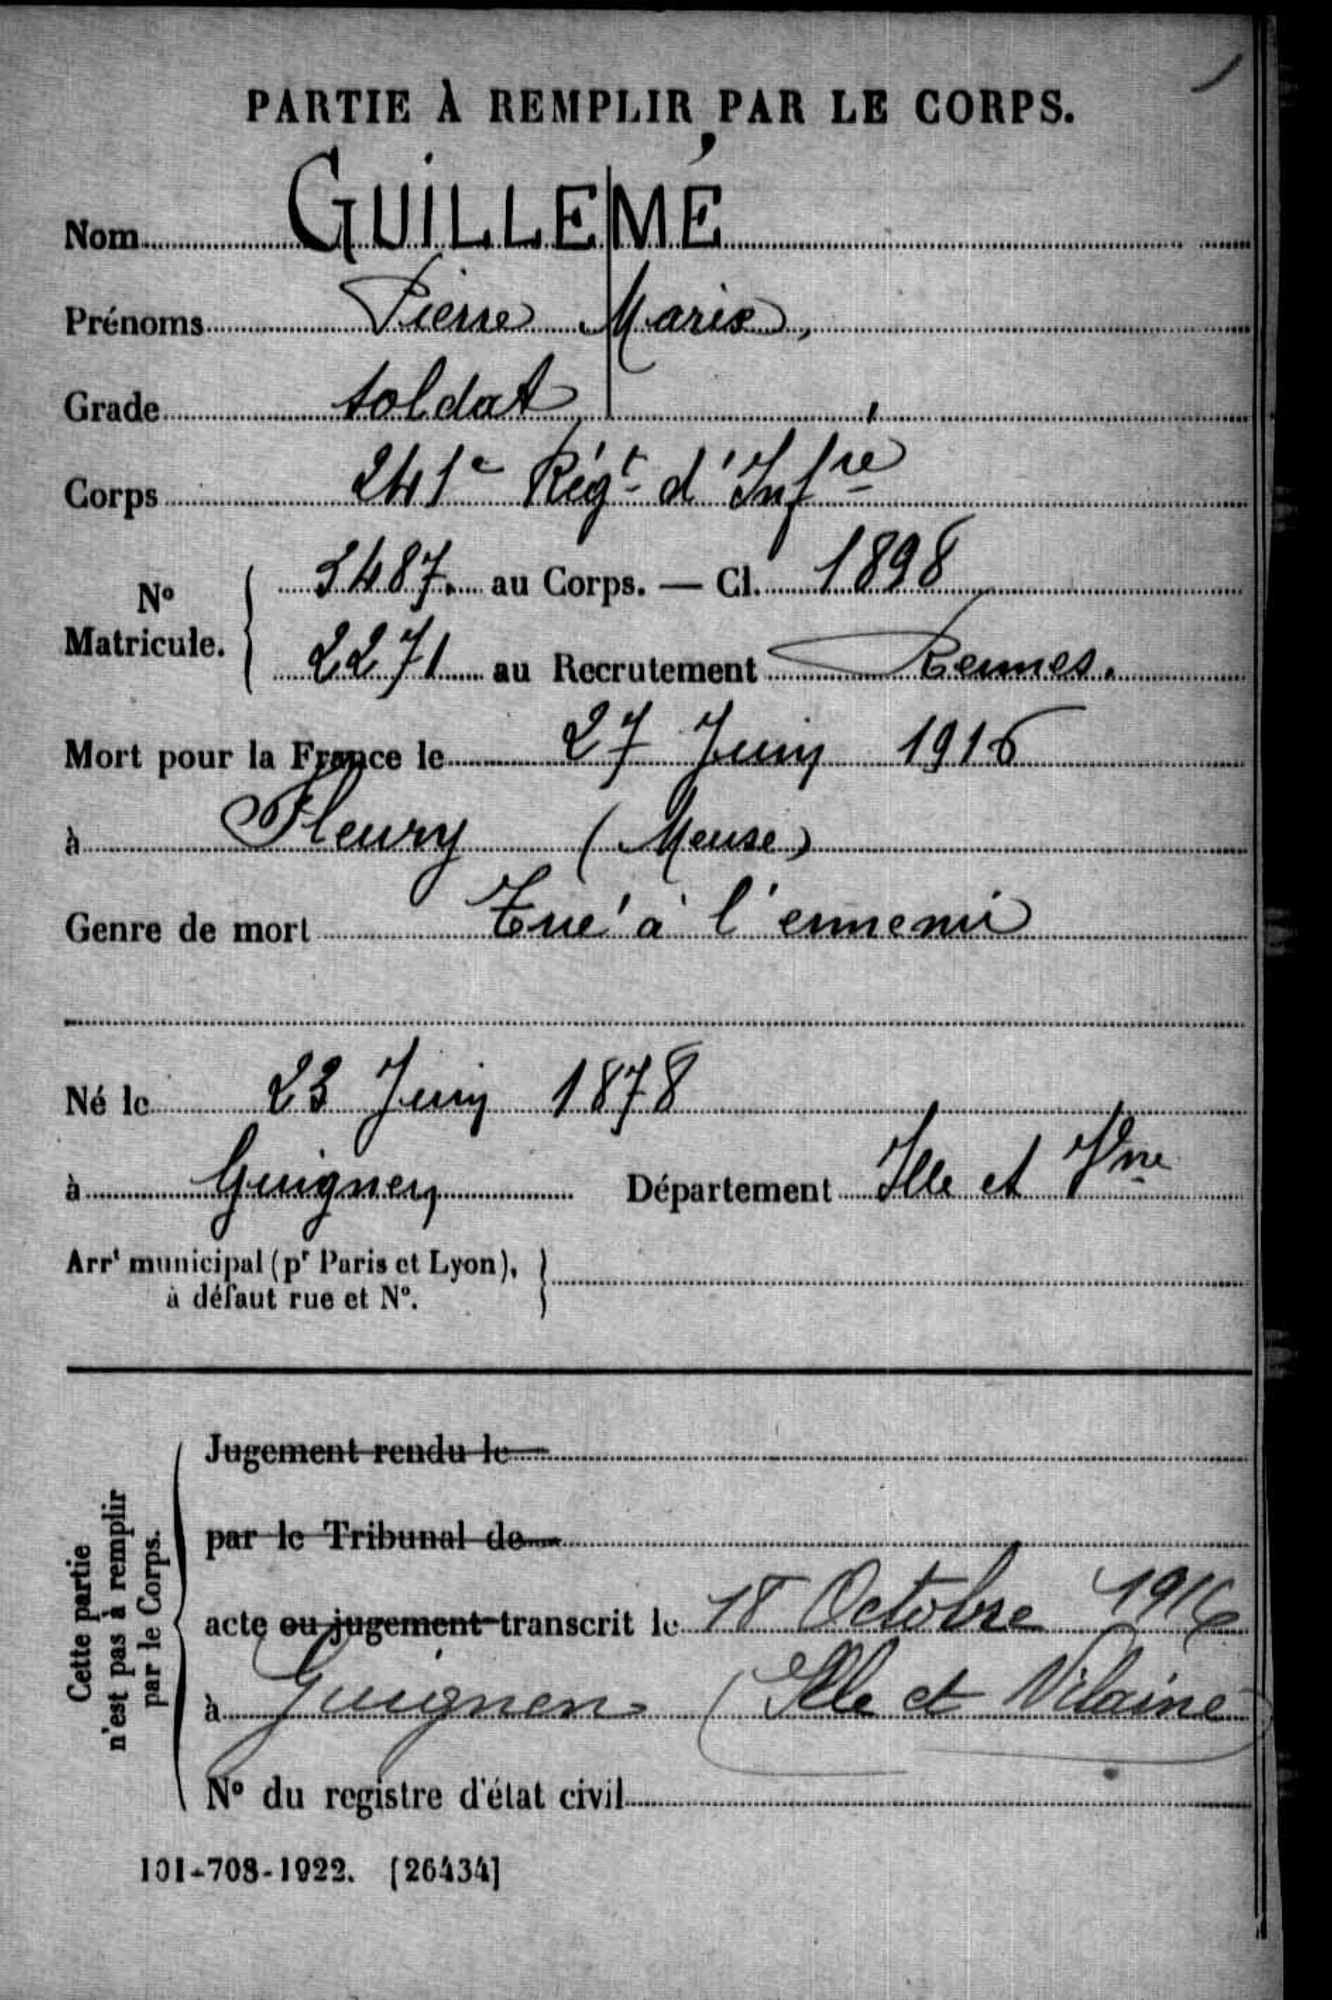 PARTIE À REMPLIR PAR LE CORPS.
Nom GUILLEMÉ
Prénoms Pierre Marie,
Grade soldat
Corps 241e Régt d'Infrie
No Matricule. { 3487. au Corps. — Cl. 1898
2271 au Recrutement Rennes.
Mort pour la France le 27 Juin 1916
à Fleury (Meuse)
Genre de mort Tué à l'ennemi
Né le 23 Juin 1878
à Guignen Département Ille et Vne
Arrt municipal (pr Paris et Lyon), }
à défaut rue et No.
Cette partie
n'est pas à remplir
par le Corps.
Jugement rendu le
par le Tribunal de
acte ou jugement transcrit le 18 Octobre 1916
à Guignen (Ille et Vilaine)
No du registre d'état civil
101-708-1922. [26434]